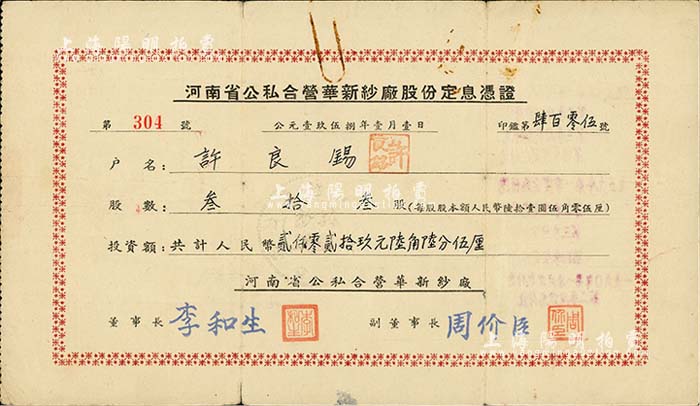 上海陽明拍賣
河南省公私合營華新紗廠股份定息憑證
第 304 號 公元壹玖伍捌年壹月壹日 印鑑第肆百零伍號
户名: 許良錫
股數: 叁拾叁股(每股股本額人民幣陸拾壹圓伍角零伍厘)
投資額: 共計人民幣貳仟零貳拾玖元陸角陸分伍厘
河南省公私合營華新紗廠
董事長 李和生 副董事長 周价臣
上海陽明拍賣
上海陽明拍賣